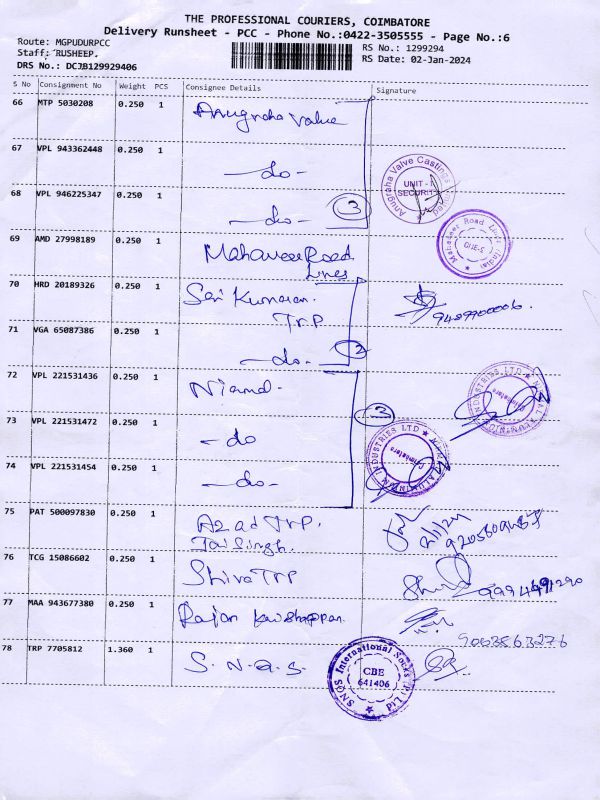 THE PROFESSIONAL COURIERS, COIMBATORE
Delivery Runsheet - PCC - Phone No.:0422-3505555 - Page No.:6
Route: MGPUDURPCC
RS No.: 1299294
Staff: RUSHEEP.
RS Date: 02-Jan-2024
DRS No.: DCJB129929406
S No Consignment No Weight PCS Consignee Details Signature
66 MTP 5030208 0.250 1 Anugraha Valve
67 VPL 943362448 0.250 1 -do-
Anugraha Valve Castings Limited
UNIT - I
SECURITY
68 VPL 946225347 0.250 1 -do- 3
69 AMD 27998189 0.250 1 Mahaveer Road Lines
70 HRD 20189326 0.250 1 Sri Kumaran TrP
71 VGA 65087386 0.250 1 -do- 2
72 VPL 221531436 0.250 1
73 VPL 221531472 0.250 1 -do 3
74 VPL 221531454 0.250 1 -do-
75 PAT 500097830 0.250 1 Azad TrP.
Jai Singh.
76 TCG 15086602 0.250 1 Shiva TrP
77 MAA 943677380 0.250 1 Rajan
9063563276
78 TRP 7705812 1.360 1 S.N.Q.S.
SNQS International Socks (P) Ltd
CBE
641406